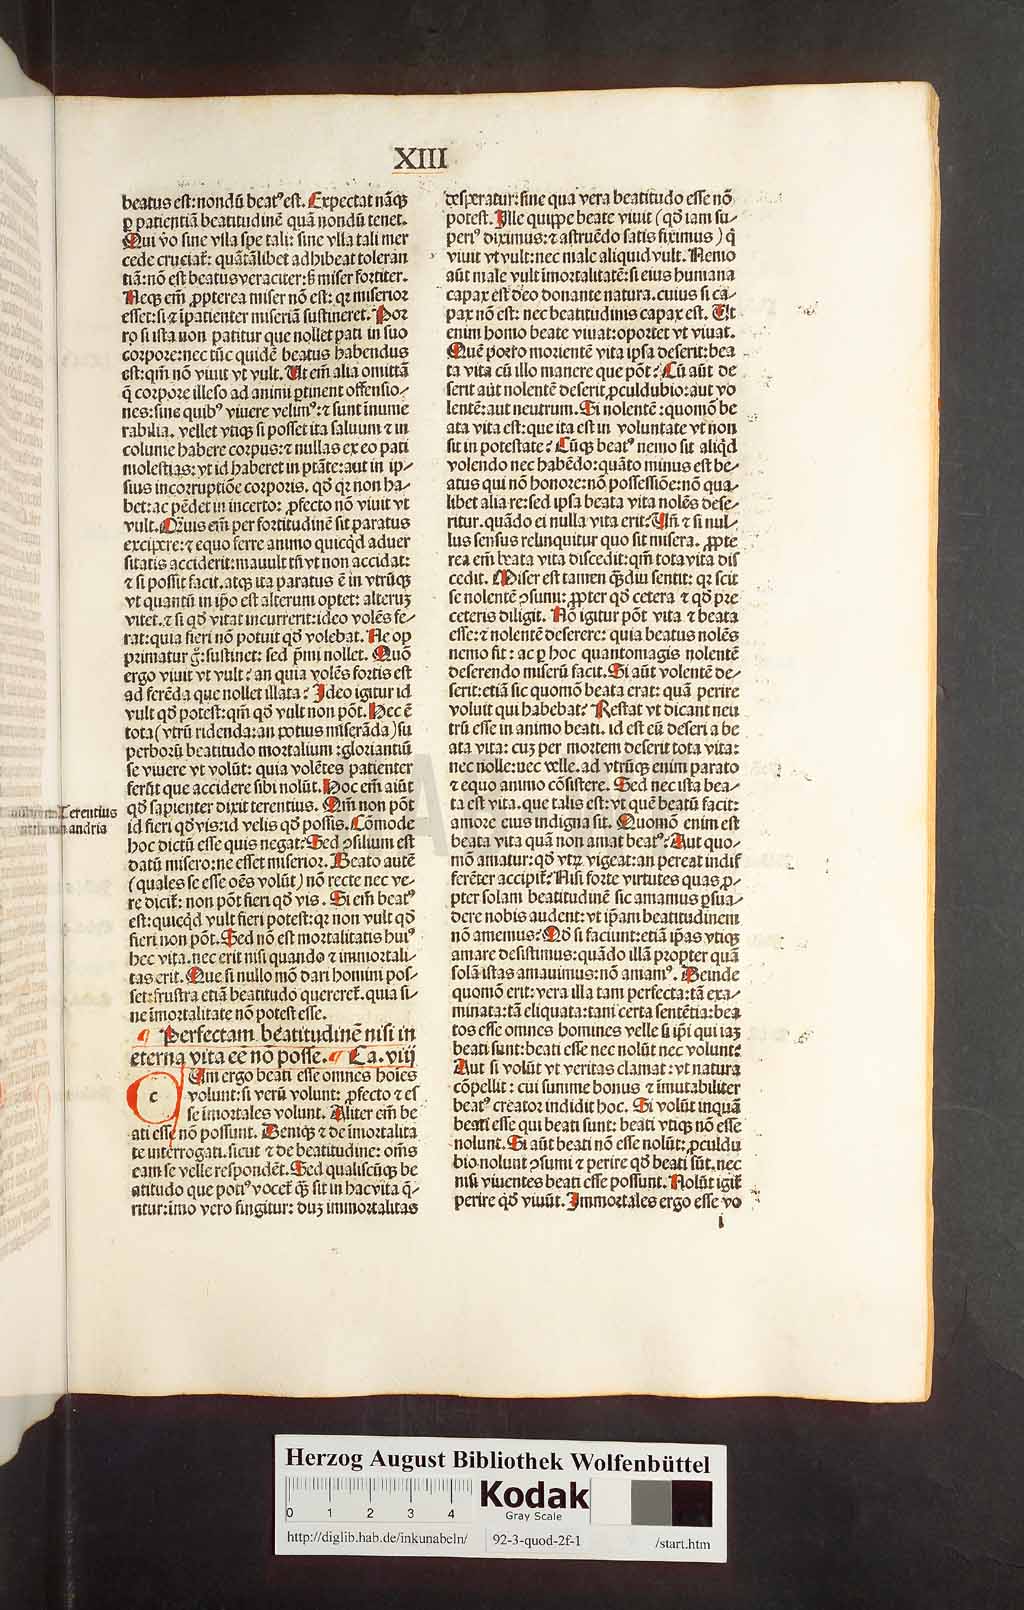 XIII
beatus est: nondū beatꝰ est. Expectat nāqꝫ
ꝑ patientiā beatitudinē quā nondū tenet.
Qui v̄o sine vlla spe tali: sine vlla tali mer
cede cruciat̄: quātālibet adhibeat toleran
tiā: nō est beatus veraciter: sꝫ miser fortiter.
Neqꝫ em̄ ꝓpterea miser nō est: qꝛ miserior
esset: si ⁊ īpatienter miseriā sustineret. Por
ro si ista non patitur que nollet pati in suo
corpore: nec tūc quidē beatus habendus
est: qm̄ nō viuit vt vult. Ut em̄ alia omittā
q̄ corpore illeso ad animi ꝑtinent offensio⸗
nes: sine quibꝰ viuere velimꝰ: ⁊ sunt inume
rabilia. vellet vtiqꝫ si posset ita saluum ⁊ in
colume habere corpus: ⁊ nullas ex eo pati
molestias: vt id haberet in ptāte: aut in ip⸗
sius incorruptiōe corporis. qd̄ qꝛ non ha⸗
bet: ac pēdet in incerto: ꝓfecto nō viuit vt
vult. Qꝫuis em̄ per fortitudinē sit paratus
excipere: ⁊ equo ferre animo quicqd aduer
sitatis acciderit: mauult tn̄ vt non accidat:
⁊ si possit facit. atqꝫ ita paratus ē in vtrūqꝫ
vt quantū in ip̄o est alterum optet: alterūꝫ
vitet. ⁊ si qd̄ vitat incurrerit: ideo volēs fe⸗
rat: quia fieri nō potuit qd̄ volebat. Ne op
primatur g̊: sustinet: sed p̄mi nollet. Quō
ergo viuit vt vult? an quia volēs fortis est
ad ferēda que nollet illata? Ideo igitur id
vult qd̄ potest: qm̄ qd̄ vult non pōt. Hec ē
tota (vtrū ridenda: an potius miserāda) su
perborū beatitudo mortalium: gloriantiū
se viuere vt volūt: quia volētes patienter
ferūt que accidere sibi nolūt. Hoc em̄ aiūt
qd̄ sapienter dixit terentius. Qm̄ non pōt
id fieri qd̄ vis: id velis qd̄ possis. Cōmode
hoc dictū esse quis negat? Sed ꝯsilium est
datū misero: ne esset miserior. Beato autē
(quales se esse oēs volūt) nō recte nec ve⸗
re dicit̄: non pōt fieri qd̄ vis. Si em̄ beatꝰ
est: quicqd vult fieri potest: qꝛ non vult qd̄
fieri non pōt. Sed nō est mortalitatis huiꝰ
hec vita. nec erit nisi quando ⁊ immortali⸗
tas erit. Que si nullo mō dari homini pos⸗
set: frustra etiā beatitudo quereret̄. quia si⸗
ne īmortalitate nō potest esse.
¶ Perfectam beatitudinē nisi in
eterna vita eē nō posse. ¶ Ca. viij
c Um ergo beati esse omnes hoīes
volunt: si verū volunt: ꝓfecto ⁊ es
se īmortales volunt. Aliter em̄ be
ati esse nō possunt. Deniqꝫ ⁊ de īmortalita
te īnterrogati. sicut ⁊ de beatitudine: om̄s
eam se velle respondēt. Sed qualiscūqꝫ be
atitudo que potiꝰ vocet̄ qꝫ sit in hac vita q̄⸗
ritur: imo vero fingitur: dum immortalitas
Terentius
andria
desperatur: sine qua vera beatitudo esse nō
potest. Ille quippe beate viuit (qd̄ iam su⸗
periꝰ diximus: ⁊ astruēdo satis fiximus) q̄
viuit vt vult: nec male aliquid vult. Nemo
aūt male vult īmortalitatē: si eius humana
capax est deo donante natura. cuius si ca⸗
pax nō est: nec beatitudinis capax est. Ut
enim homo beate viuat: oportet vt viuat.
Quē porro morientē vita ipsa deserit: bea
ta vita cū illo manere que pōt? Cū aūt de
serit aūt nolentē deserit ꝓculdubio: aut vo
lentē: aut neutrum. Si nolentē: quomō be
ata vita est: que ita est in voluntate vt non
sit in potestate? Cūqꝫ beatꝰ nemo sit aliqd
volendo nec habēdo: quāto minus est be⸗
atus qui nō honore: nō possessiōe: nō qua⸗
libet alia re: sed ipsa beata vita nolēs dese⸗
ritur. quādo ei nulla vita erit? Un̄ ⁊ si nul⸗
lus sensus relinquitur quo sit misera. ꝓpte
rea em̄ beata vita discedit: qm̄ tota vita dis
cedit. Miser est tamen qꝫdiu sentit: qꝛ scit
se nolentē ꝯsumi: ꝓpter qd̄ cetera ⁊ qd̄ pre
ceteris diligit. Nō igitur pōt vita ⁊ beata
esse: ⁊ nolentē deserere: quia beatus nolēs
nemo fit: ac ꝑ hoc quantomagis nolentē
deserendo miserū facit. Si aūt volentē de⸗
serit: etiā sic quomō beata erat: quā perire
voluit qui habebat? Restat vt dicant neu
trū esse in animo beati. id est eū deseri a be
ata vita: cuꝫ per mortem deserit tota vita:
nec nolle: nec velle. ad vtrūqꝫ enim parato
⁊ equo animo cōsistere. Sed nec ista bea⸗
ta est vita. que talis est: vt quē beatū facit:
amore eius indigna sit. Quomō enim est
beata vita quā non amat beatꝰ? Aut quo⸗
mō amatur: qd̄ vtꝝ vigeat: an pereat indif
ferēter accipit̄? Nisi forte virtutes quas ꝓ⸗
pter solam beatitudinē sic amamus ꝑsua⸗
dere nobis audent: vt ip̄am beatitudinem
nō amemus? Qd̄ si faciunt: etiā ip̄as vtiqꝫ
amare desistimus: quādo illā propter quā
solā istas amauimus: nō amamꝰ. Deinde
quomō erit: vera illa tam perfecta: tā exa⸗
minata: tā eliquata: tam certa sentētia: bea
tos esse omnes homines velle si ip̄i qui iaꝫ
beati sunt: beati esse nec nolūt nec volunt?
Aut si volūt vt veritas clamat: vt natura
cōpellit: cui summe bonus ⁊ īmutabiliter
beatꝰ creator indidit hoc. Si volūt inquā
beati esse qui beati sunt: beati vtiqꝫ nō esse
nolunt. Si aūt beati nō esse nolūt: ꝓculdu
bio nolunt ꝯsumi ⁊ perire qd̄ beati sūt. nec
nisi viuentes beati esse possunt. Nolūt igit̄
perire qd̄ viuūt. Immortales ergo esse vo
i
Herzog August Bibliothek Wolfenbüttel
0 1 2 3 4
Kodak
Gray Scale
http://diglib.hab.de/inkunabeln/ 92-3-quod-2f-1 /start.htm